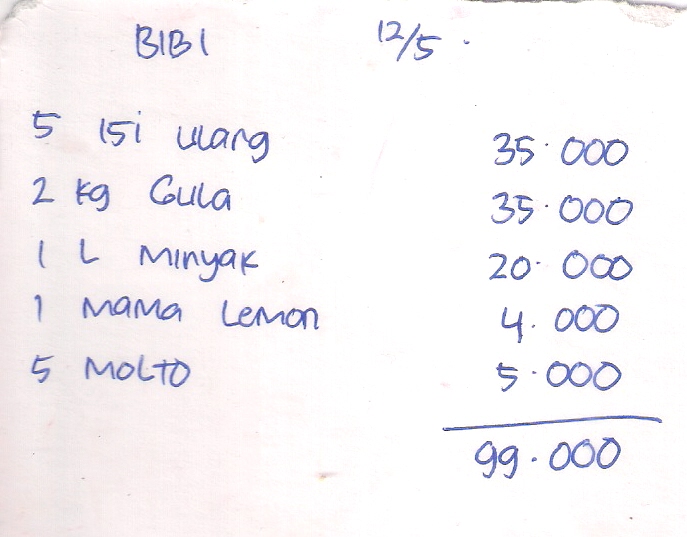 BIBI 12/5.
5 isi ulang 35.000
2 kg Gula 35.000
1 L Minyak 20.000
1 Mama Lemon 4.000
5 MOLTO 5.000
99.000